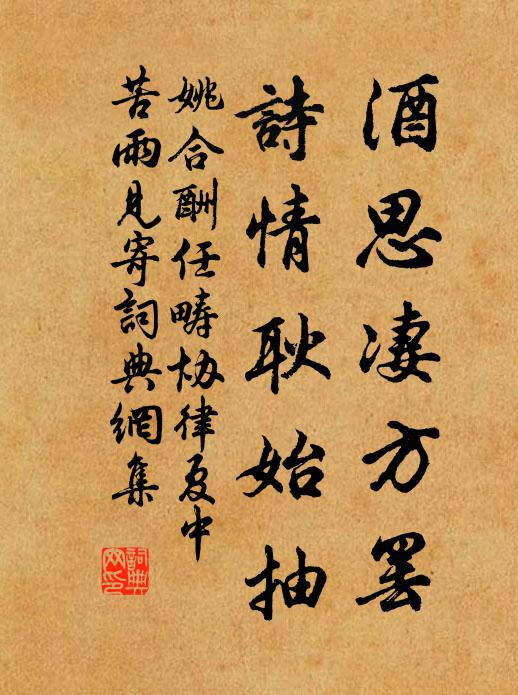 酒思凄方罢
詩情耿始抽
姚合酬任畴协律夏中
苦雨見寄詞典網集
詞典网印